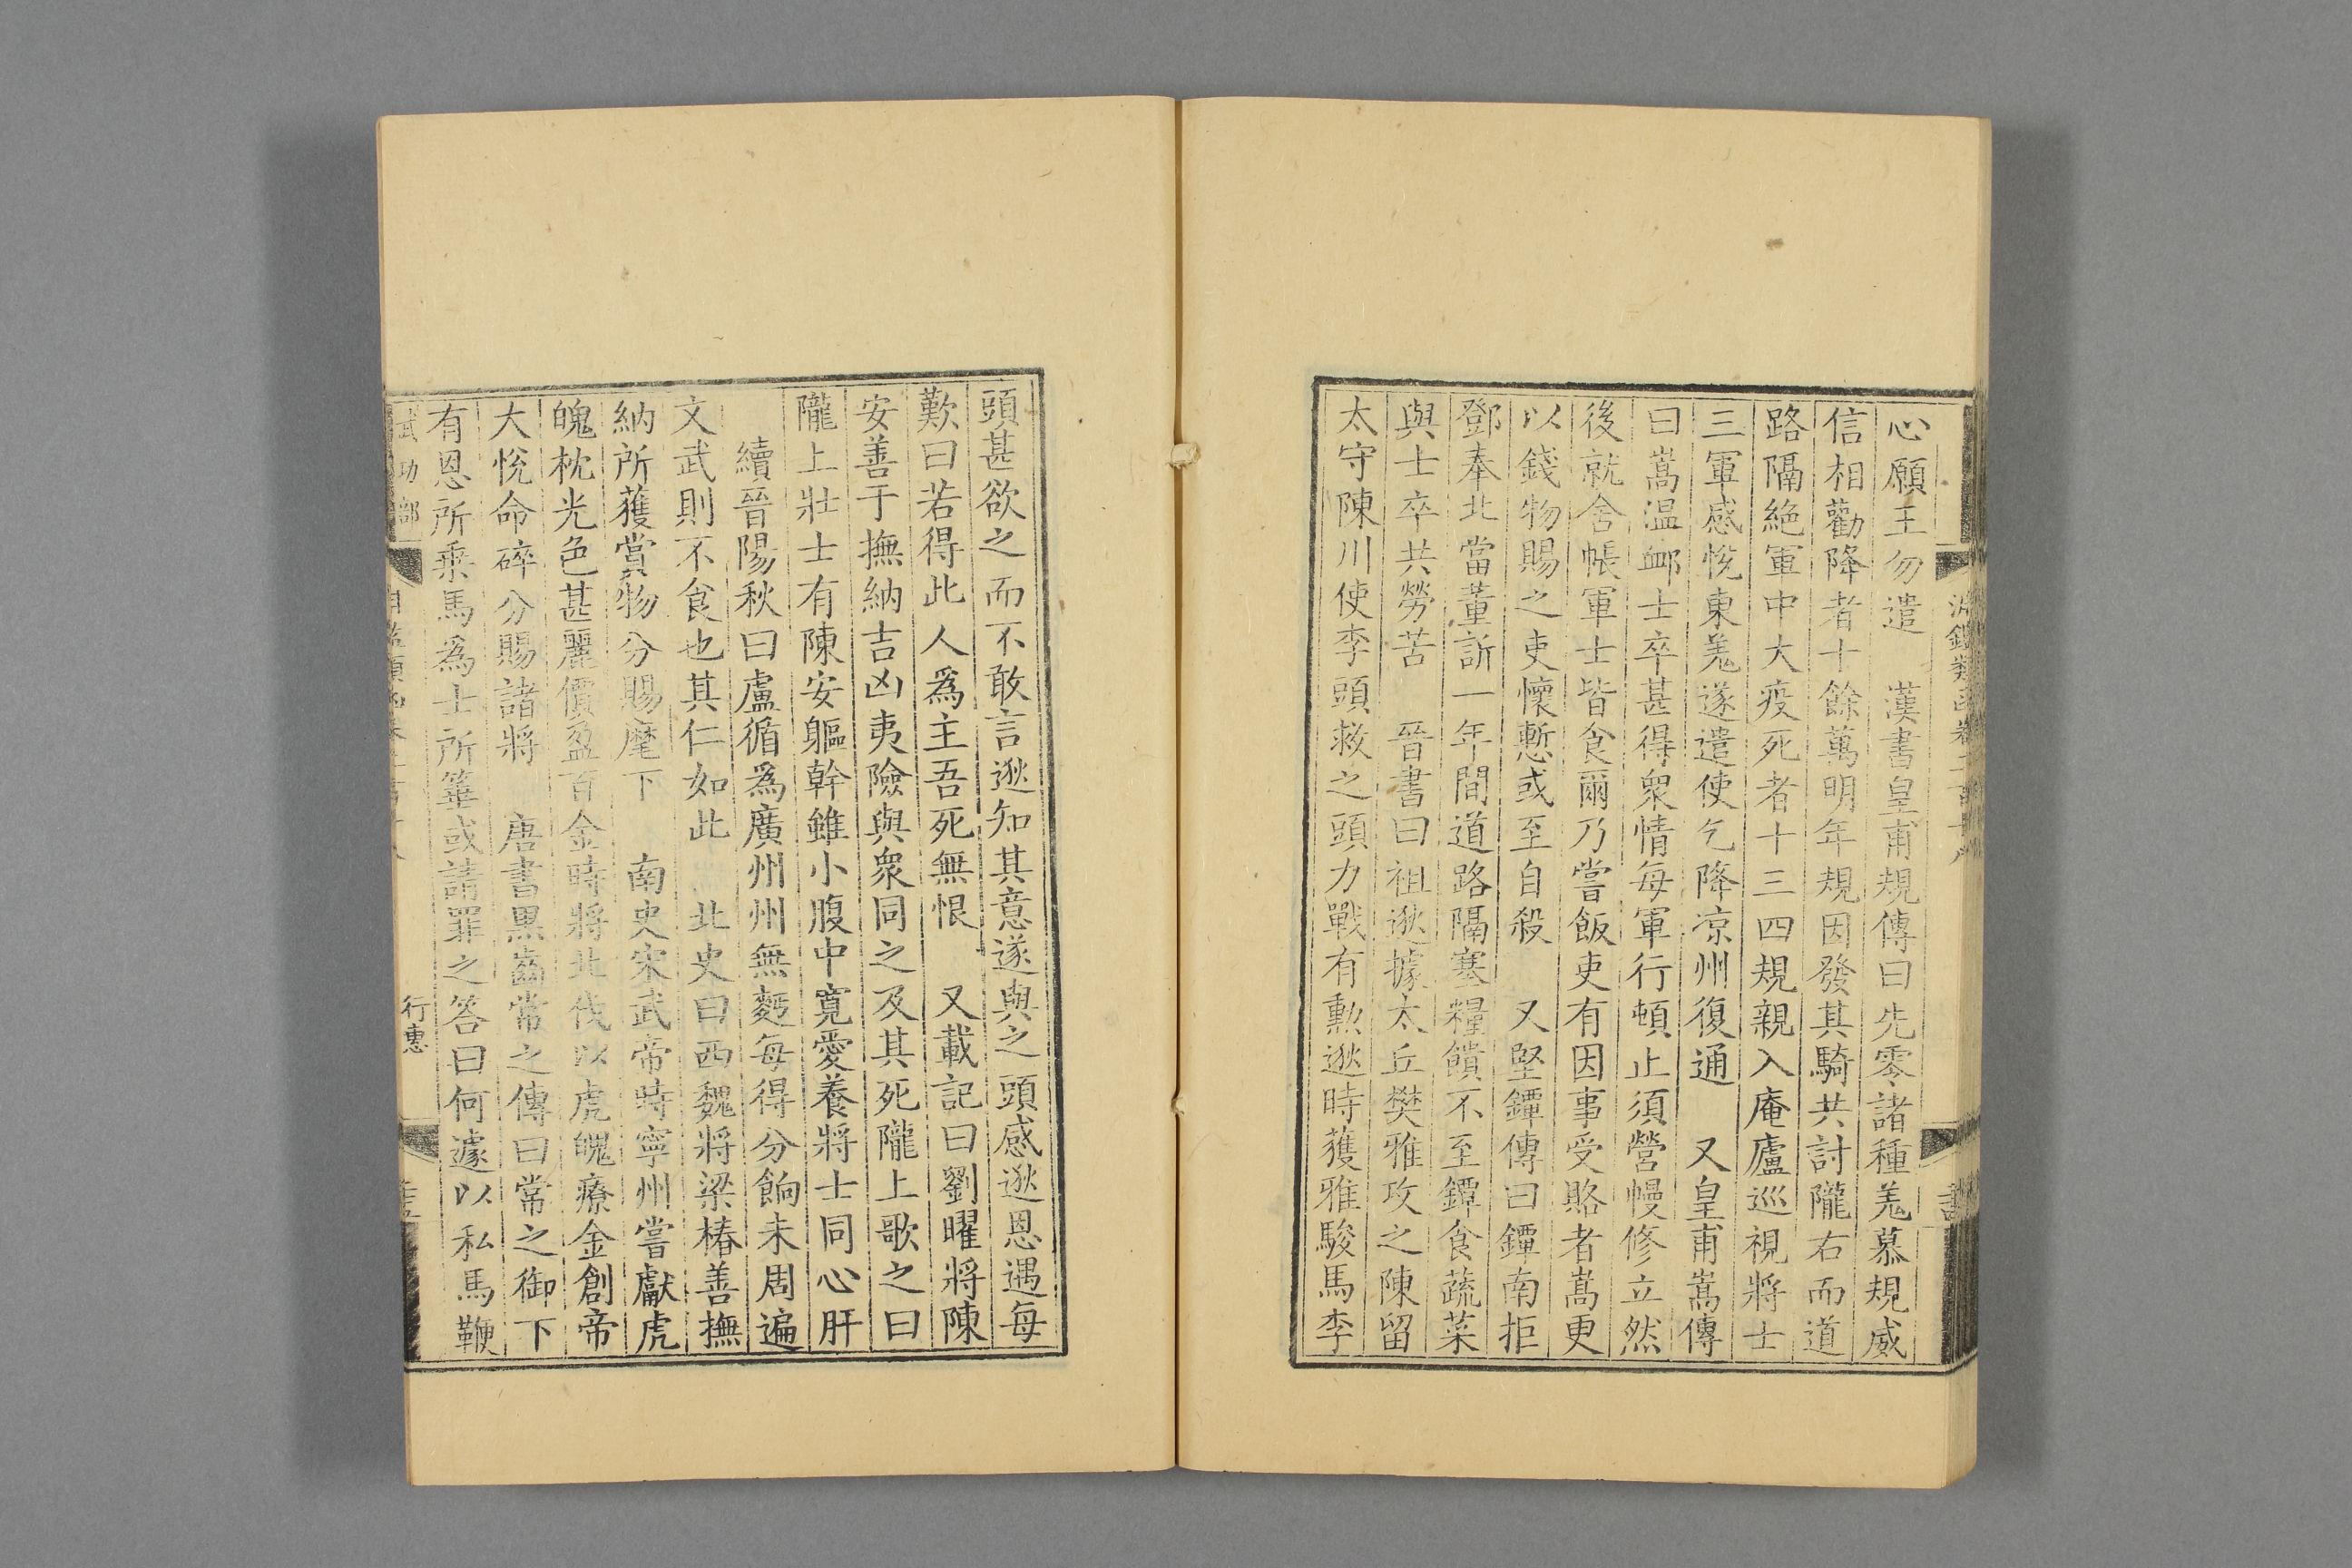 心願王勿遣　漢書皇甫規傳曰先零諸種羌慕規威
信相勸降者十餘萬明年規因發其騎共討隴右而道
路隔絶軍中大疫死者十三四規親入庵廬巡視將士
三軍感悅東羌遂遣使乞降凉州復通　又皇甫嵩傳
曰嵩温䘏士卒甚得衆情每軍行頓止須營幔修立然
後就舍帳軍士皆食爾乃嘗飯吏有因事受賂者嵩更
以錢物賜之吏懷慙或至自殺　又堅鐔傳曰鐔南拒
鄧奉北當董訢一年間道路隔塞糧饋不至鐔食蔬菜
與士卒共勞苦　晉書曰祖逖據太丘樊雅攻之陳留
太守陳川使李頭救之頭力戰有勲逖時獲雅駿馬李
頭甚欲之而不敢言逖知其意遂與之頭感逖恩遇每
歎曰若得此人爲主吾死無恨　又載記曰劉曜將陳
安善于撫納吉凶夷險與衆同之及其死隴上歌之曰
隴上壯士有陳安軀幹雖小腹中寬愛養將士同心肝
續晉陽秋曰盧循爲廣州州無麪每得分餉未周遍
文武則不食也其仁如此　北史曰西魏將梁椿善撫
納所獲賞物分賜麾下　南史宋武帝時寧州嘗獻虎
魄枕光色甚麗價盈百金時將北伐以虎魄療金創帝
大悅命碎分賜諸將　唐書黒齒常之傳曰常之御下
有恩所乘馬爲士所箠或請罪之答曰何遽以私馬鞭
武功部
行惠